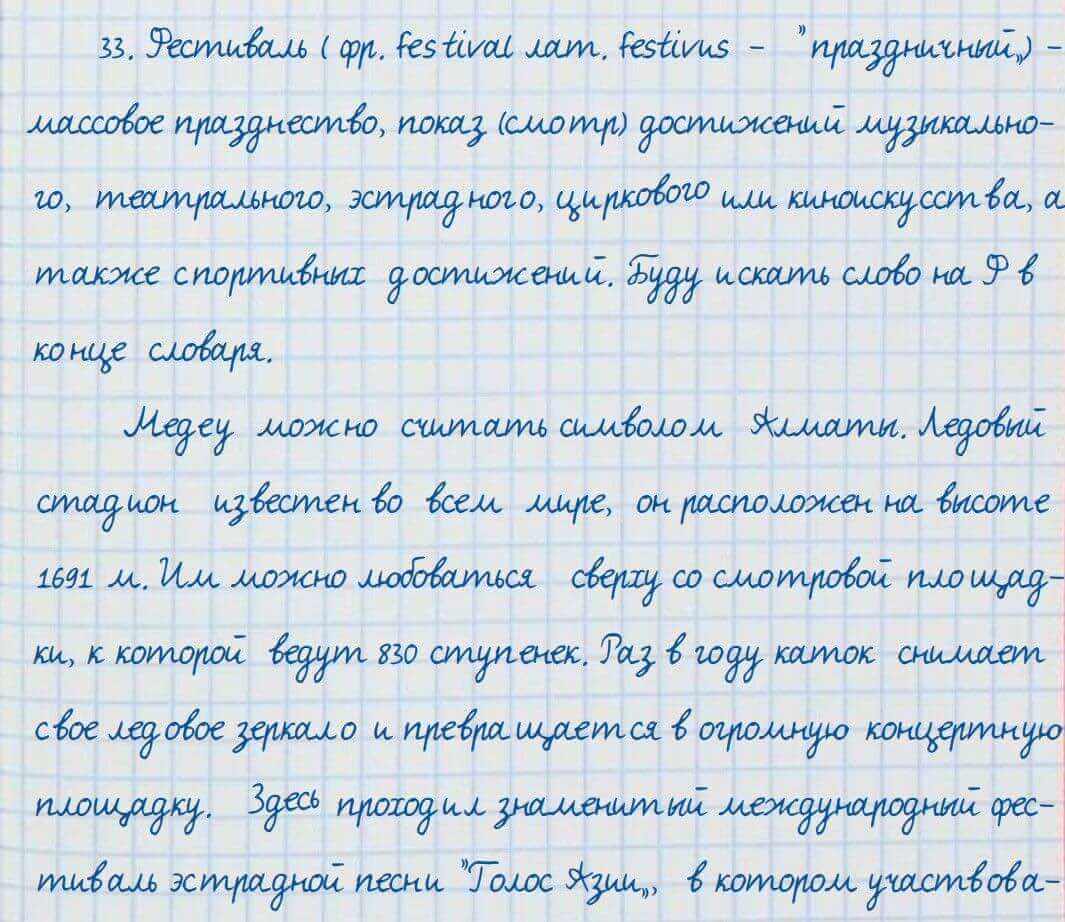 33. Фестиваль ( фр. festival лат. festivus - "праздничный„) -
массовое празднество, показ (смотр) достижений музыкально-
го, театрального, эстрадного, циркового или киноискусства, а
также спортивных достижений. Буду искать слово на Ф в
конце словаря.
Медеу можно считать символом Алматы. Ледовый
стадион известен во всем мире, он расположен на высоте
1691 м. Им можно любоваться сверху со смотровой площад-
ки, к которой ведут 830 ступенек. Раз в году каток снимает
свое ледовое зеркало и превращается в огромную концертную
площадку. Здесь проходил знаменитый международный фес-
тиваль эстрадной песни "Голос Азии„, в котором участвова-